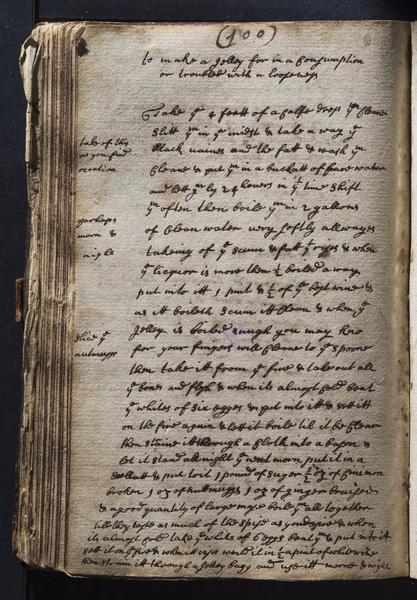 (100)
to make a Jelley for in a Consumption
or troubled with a loosness
Take ye 4 feett of a Calfe dress ym Cleane
slitt ym in ye midst & take a way ye
black vaines and the fatt & wash ym
Cleane & put ym in a buckett of faire water
and lett ym ly 24 howers in yt time shift
ym often then boile ym in 2 gallons
of Clean water very softly allwayes
takeing of ye scum & fatt yt rises & when
ye liquor is more then ½ boiled away
put into itt 1 pint & ½ of ye best wine &
as it boileth scum itt Clean & when ye
Jelley is boiled enugh you may kno
for your fingers will Cleave to ye spoone
then take itt from ye fire & take out all
ye bones and flesh & when its almost Cold beat
ye whites of six egges & put into itt & sett itt
on the fire again & lett it boile til it be Clear
then straine itt through a Cloth into a bason &
let it stand all night ye next morn put it in a
skellett & put to it 1 pound of suger ½ oz of Cinemon
broken 1 oz of nuttmeggs 1 oz of ginger bruised
& a good quantity of large mace boile ym all together
till they taste as much of the spise as you desire & when
its almost Cold take ye whites of 6 egges beat ym & put into it
sett it on ye fire & when itt rises put in ½ a pint of white wine
then strain itt through a Jelley bagg and use itt morne & night
take of this
as you find
occation
perhaps
morn &
night
slice ye
nutmeggs